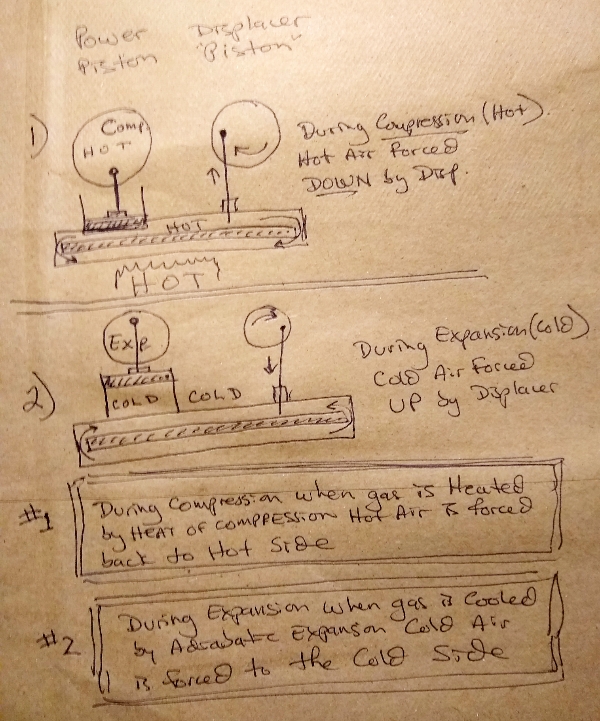 Power Displacer
Piston "Piston"
1)
Comp
HOT
During Compression (Hot).
Hot Air Forced
DOWN by Disp.
HOT
HOT
2)
Exp
COLD COLD
During Expansion (Cold)
Cold Air Forced
UP by Displacer
#1
During Compression when gas is Heated
by HEAT OF COMPRESSION Hot Air is forced
back to Hot Side
#2
During Expansion when gas is cooled
by Adiabatic Expansion Cold Air
is forced to the Cold Side